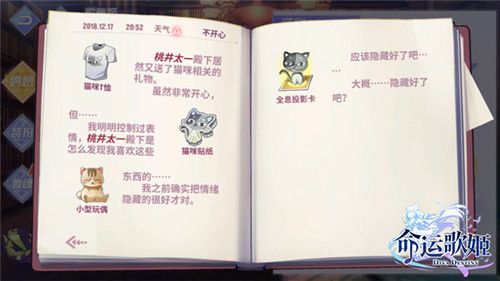 2018.12.17 20:52 天气 不开心
桃井太一殿下居
然又送了猫咪相关的
礼物。
虽然非常开心，
猫咪T恤
但……
我明明控制过表
情，桃井太一殿下是
怎么发现我喜欢这些
猫咪贴纸
东西的……
我之前确实把情绪
隐藏的很好才对。
小型玩偶
应该隐藏好了吧…
…
大概……隐藏好了
吧？
全息投影卡
命运歌姬
DIVA DESTINY